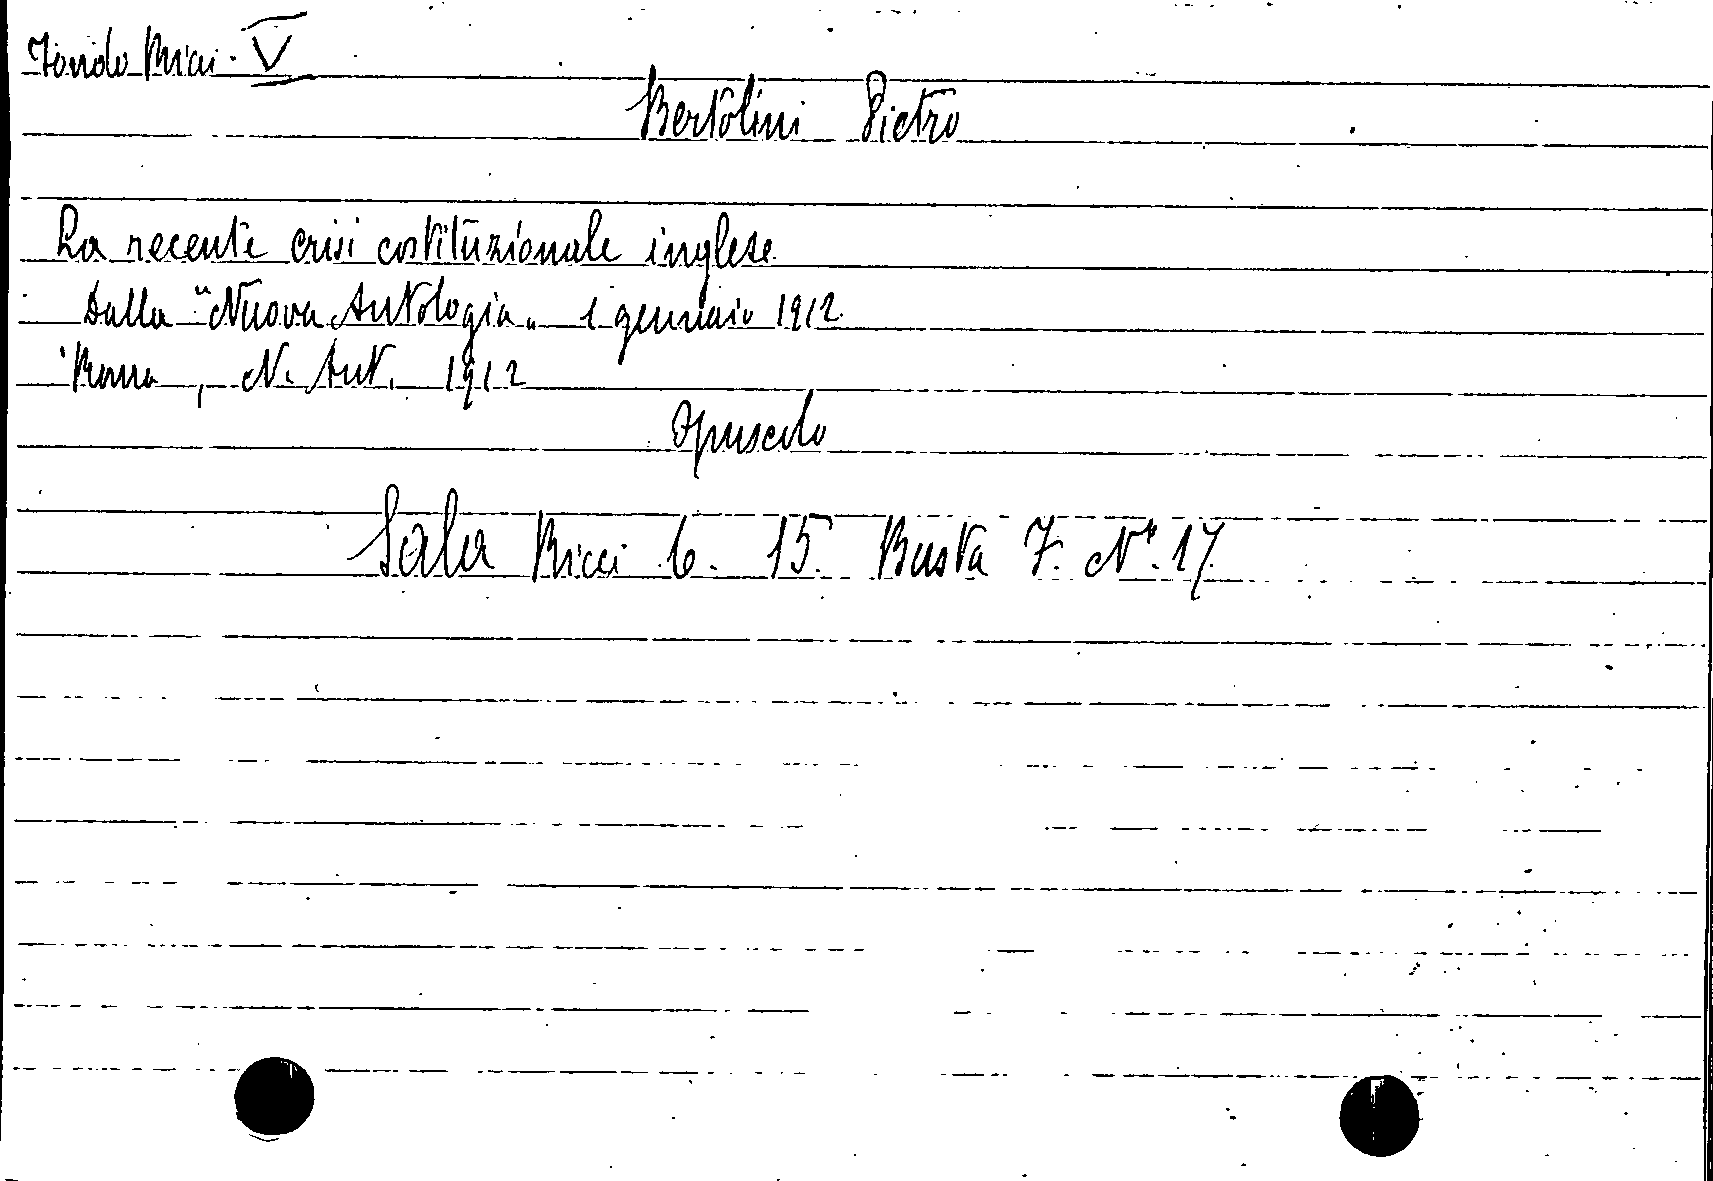 Fondo Ricci. V
Bertolini Pietro
La recente crisi costituzionale inglese
Dalla "Nuova Antologia„ 1 gennaio 1912.
Roma, N. Ant. 1912
Opuscolo
Sala Ricci 6. 15. Busta 7. N°. 17